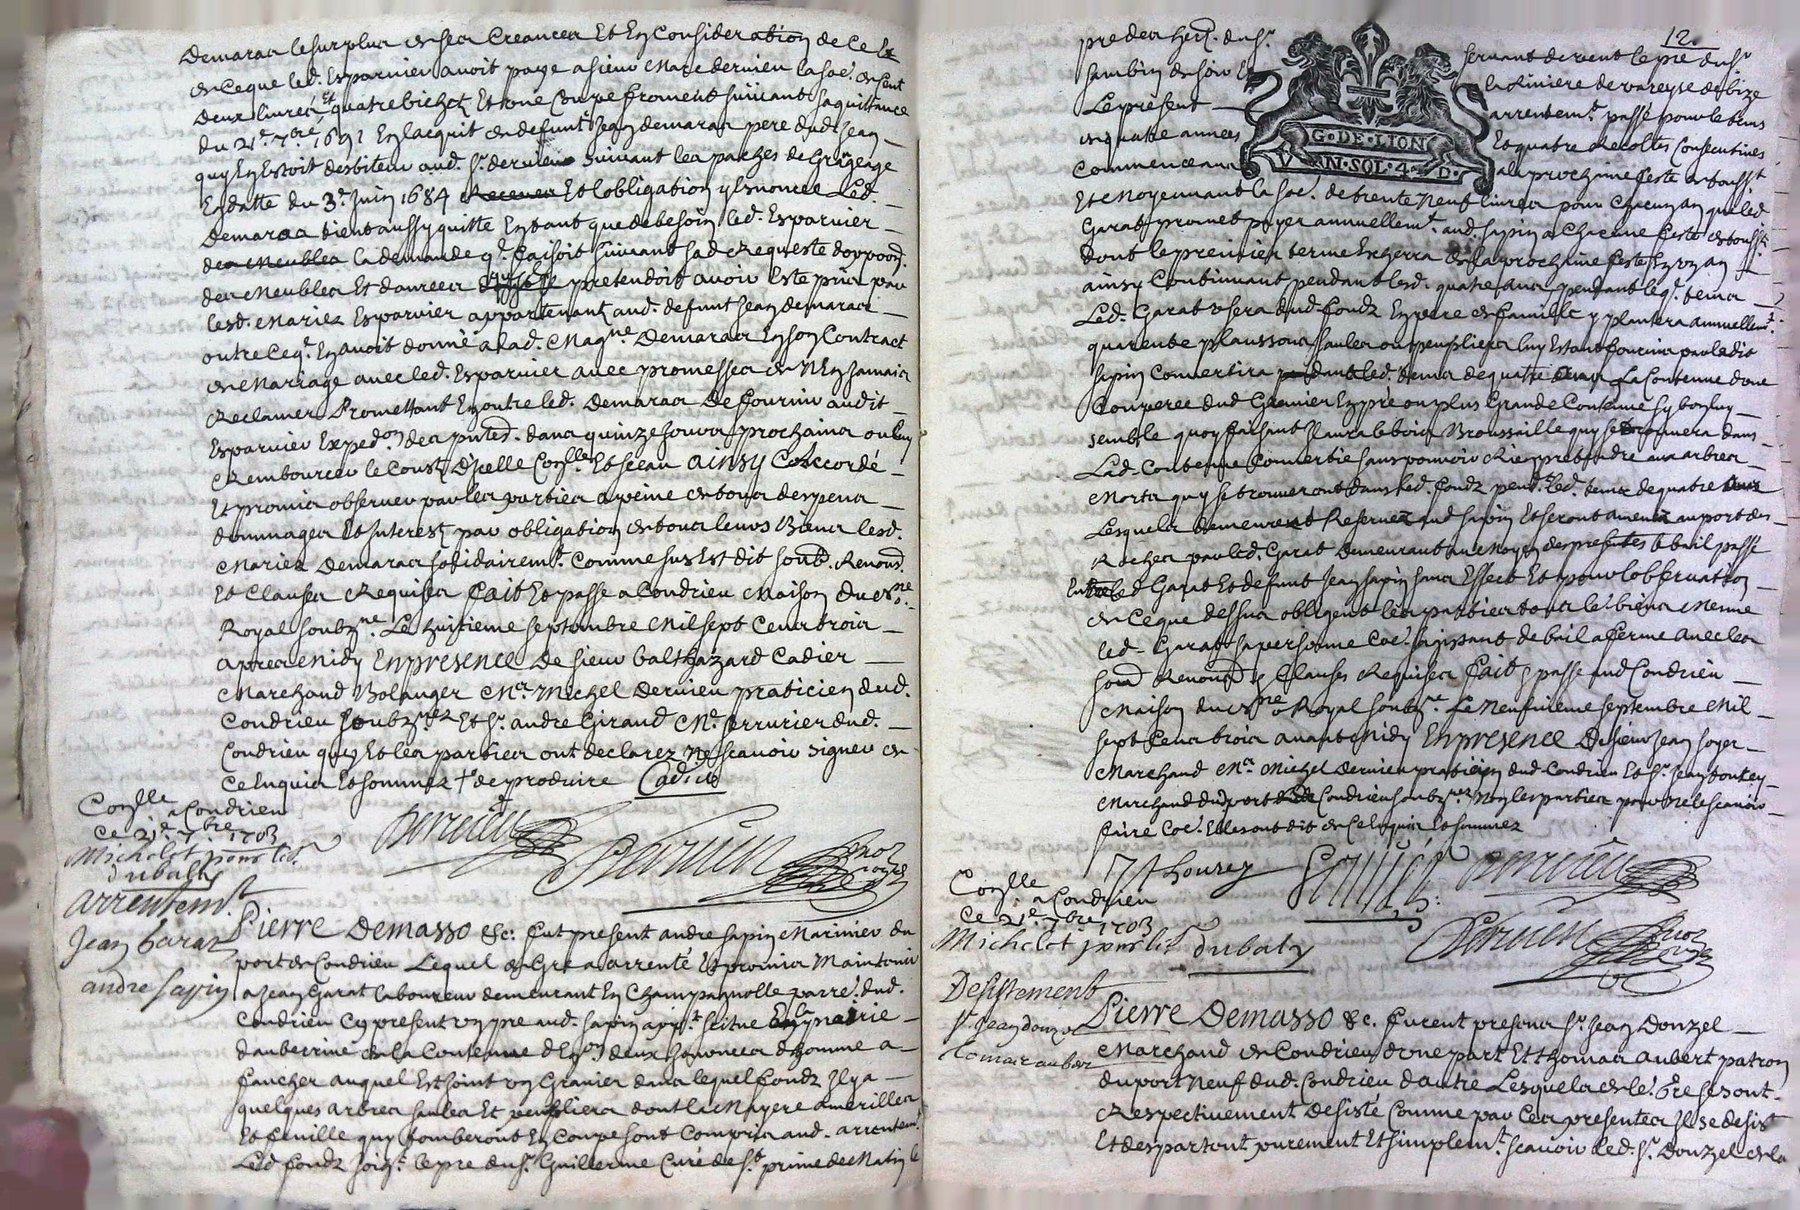 Demaras le surplus de ses Creances Et En Consideration de Ce Et
de Ceque led. Esparvier avoit paye a sieur Marc dervieu la so.e de Cent
Deux livres Et quatre bichetz Et une Coupe froment suivant sa quittance
du 21.e 7.bre 1691 En lacquit de defunt Jean demaras pere dud. Jean
quy En Estoit debiteur aud. s.r dervieu suivant les
En datte du 3.e Juin 1684 Et lobligation y Enoncee Led.
Demaras tient aussy quitte En tant que de besoin led. Esparvier
la demande q.l faisoit suivant sad. Requeste
des Meubles Et danrees pretendoit avoir Este pris par
lesd. Mariez Esparvier appartenant aud. defunt Jean demaras
outre Ceq.l En avoit donné a lad. Mag.ne Demaras En son Contract
de Mariage avec led. Esparvier avec promesses de N'En Jamais
Reclamer Promettant En outre led. Demaras De fournir audit
Esparvier Exped.on des p.nted. dans quinze Jours prochains ou luy
Rembourcer le Coust D'Icelle Con.lle Et sceau ainsy Concordé
Et promis observer par les parties a peine de tous despens
dommages Et Interestz par obligation de tous leurs Biens lesd.
Mariez Demaras solidairem.t Comme sus Est dit soub. Renond.
Et Clauses Requises fait Et passé a Condrieu Maison du No.re
Royal soubz.ne Le huitieme septembre Mil sept Cens trois
apres midy En presence De sieur balthazard Cadier
Marchand Bolanger M.e Michel Dervieu praticien dud.
Condrieu soubz.nez Et s.r andre Giraud M.e serrurier dud.
Condrieu quy Et les parties ont declarez Ne scavoir signer de
Ce Enquis Et sommez de produire Cadier
Con.lle a Condrieu
Ce 21.e 7.bre 1703
Michelet pour led.
Dubaty
Dervieu Dervieu No.re Royal
arrentem.t
Jean Garat
andre sapin
Pierre Demasso &c: fut present andre sapin Marinier du
port de Condrieu Lequel de Gré a arrenté Et promis Maintenir
a Jean Garat laboureur demeurant En Champagnolle parre. dud.
Condrieu Cy present un pre aud. sapin app.t scitue
dauberrine de la Contenue d'En.on deux Journees dhomme a
faucher auquel Est Joint un Gravier dans lequel fondz Il y a
quelques arbres saules Et peupliers dont la
Et feuille quy tomberont En Coupe sont Compris aud. arrentem.t
Led. fondz Joig.t le pre du s.r Guillerme Curé de s.t prim de Matin le
12.
pre des her.s du s.r servant de vent le pre du s.r
sambin de soir Et la Riviere de vareyse de bize
Le présent arrentem.t passé pour le tems
de quatre années Et quatre Recoltes Consecutives
Commenceans a la prochaine feste de touss.t
G·DE·LION
VN·SOL·4·D·
Et Moyennant la so.e de trente Neuf livres pour Chacun an que led.
Garat promet payer annuellem.t aud. sapin a Chacune feste de touss.t
dont le premier terme Escherra de la prochaine feste En un an
ainsy Continuant pendant lesd. quatre ans pendant leq.l tems
Led. Garat usera dud. fondz En pere de famille y plantera annuellem.t
quarente plansons saules ou peupliers luy Estant fournis par ledit
sapin Convertira led. tems de quatre la Contenue d'une
Couperee dud. Gravier En pre ou plus Grande Contenue sy bon luy
semble quoy faisant Il aura le bois Broussaille quy se trouvera dans
Lad. Contenue Convertie sans pouvoir Rien pretendre aux arbres
Morts quy se trouveront dans led. fondz pend.t led. tems de quatre ans
Lesquels demeurent Reservez aud. sapin Et seront amenez au port des
Roches par led. Garat demeurant au Moyen des presentes le bail passé
Entre led. Garat Et defunt Jean sapin sans Effect Et pour lobservation
de Ce que dessus obligent les parties tous le.s biens Mesme
led. Garat sa personne Co.e sagissant de bail a ferme avec les
soub. Renond. & Clauses Requises fait & passé aud. Condrieu
Maison du No.re Royal soubz.ne Le Neufvieme septembre Mil
sept Cens trois avant Midy En presence De sieur Jean soyer
Marchand M.e Michel Dervieu praticien dud. Condrieu Et s.r Jean
Marchand dud. port de Condrieu soubz.nez Non les parties pour Ne le scavoir
faire Co.e Elles ont dit de Ce Enquis Et sommez
Dervieu
Con.lle a Condrieu
Ce 21.e 7.bre 1703
Michelet pour led.
Dubaty
Dervieu No.re Royal
Desistement
s.r Jean donzel
thomas aubert
Pierre Demasso &c. furent presens s.r Jean Donzel
Marchand de Condrieu d'une part Et thomas aubert patron
du port Neuf dud. Condrieu d'autre Lesquels de le.r Gré se sont
Respectivement Desisté Comme par Ces presentes Ils se desist.
Et despartent purement Et simplem.t scavoir led. s.r Donzel de la